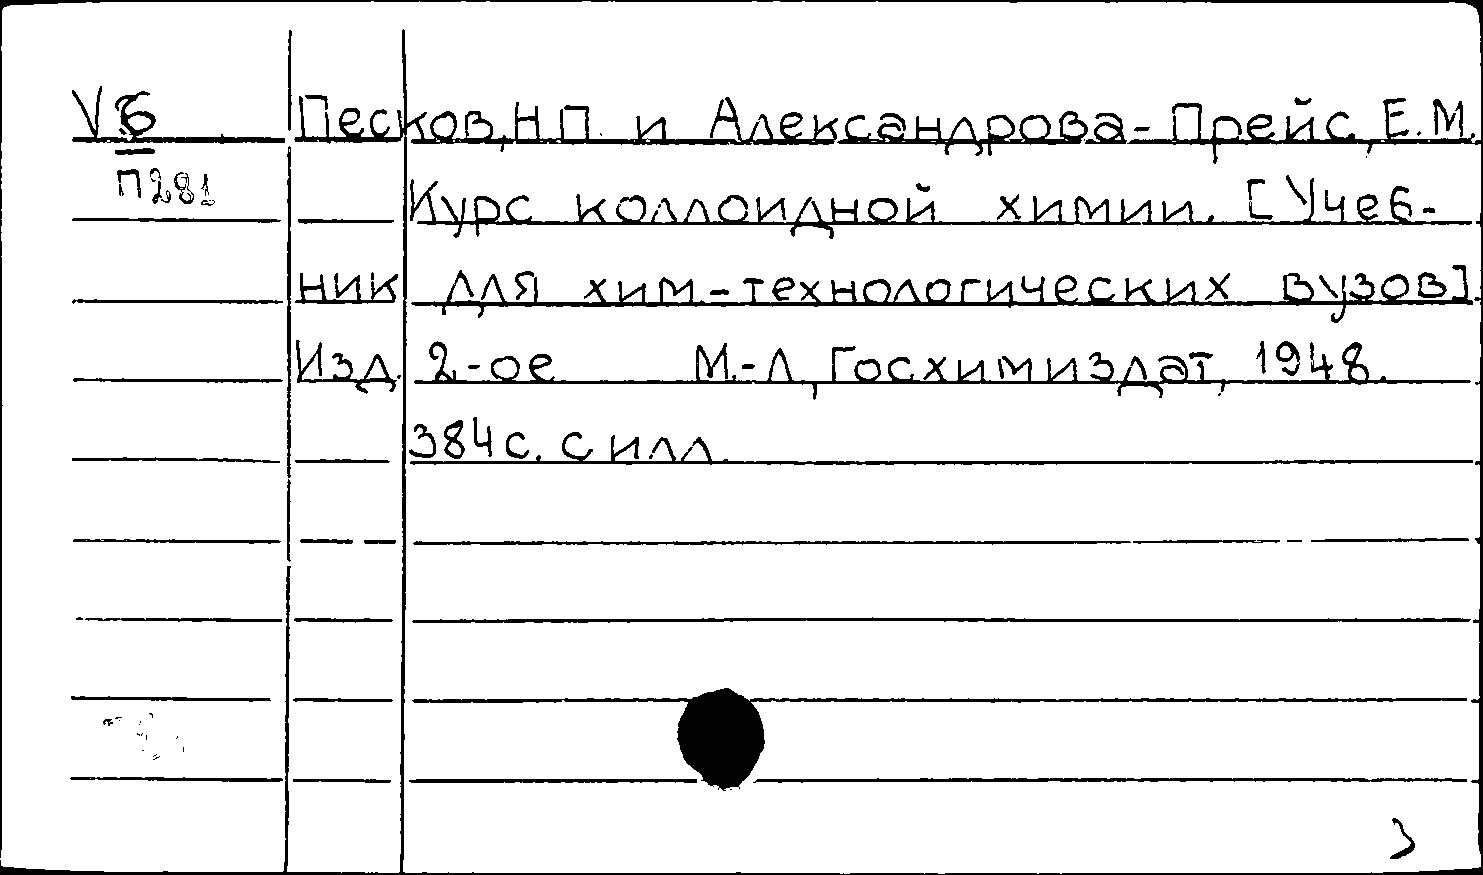 Vб Песков, Н.П. и Александрова-Прейс, Е.М.
П281
Курс коллоидной химии. [Учеб-
ник для хим-технологических вузов]
Изд. 2-ое М.-Л., Госхимиздат, 1948.
384с. с илл.